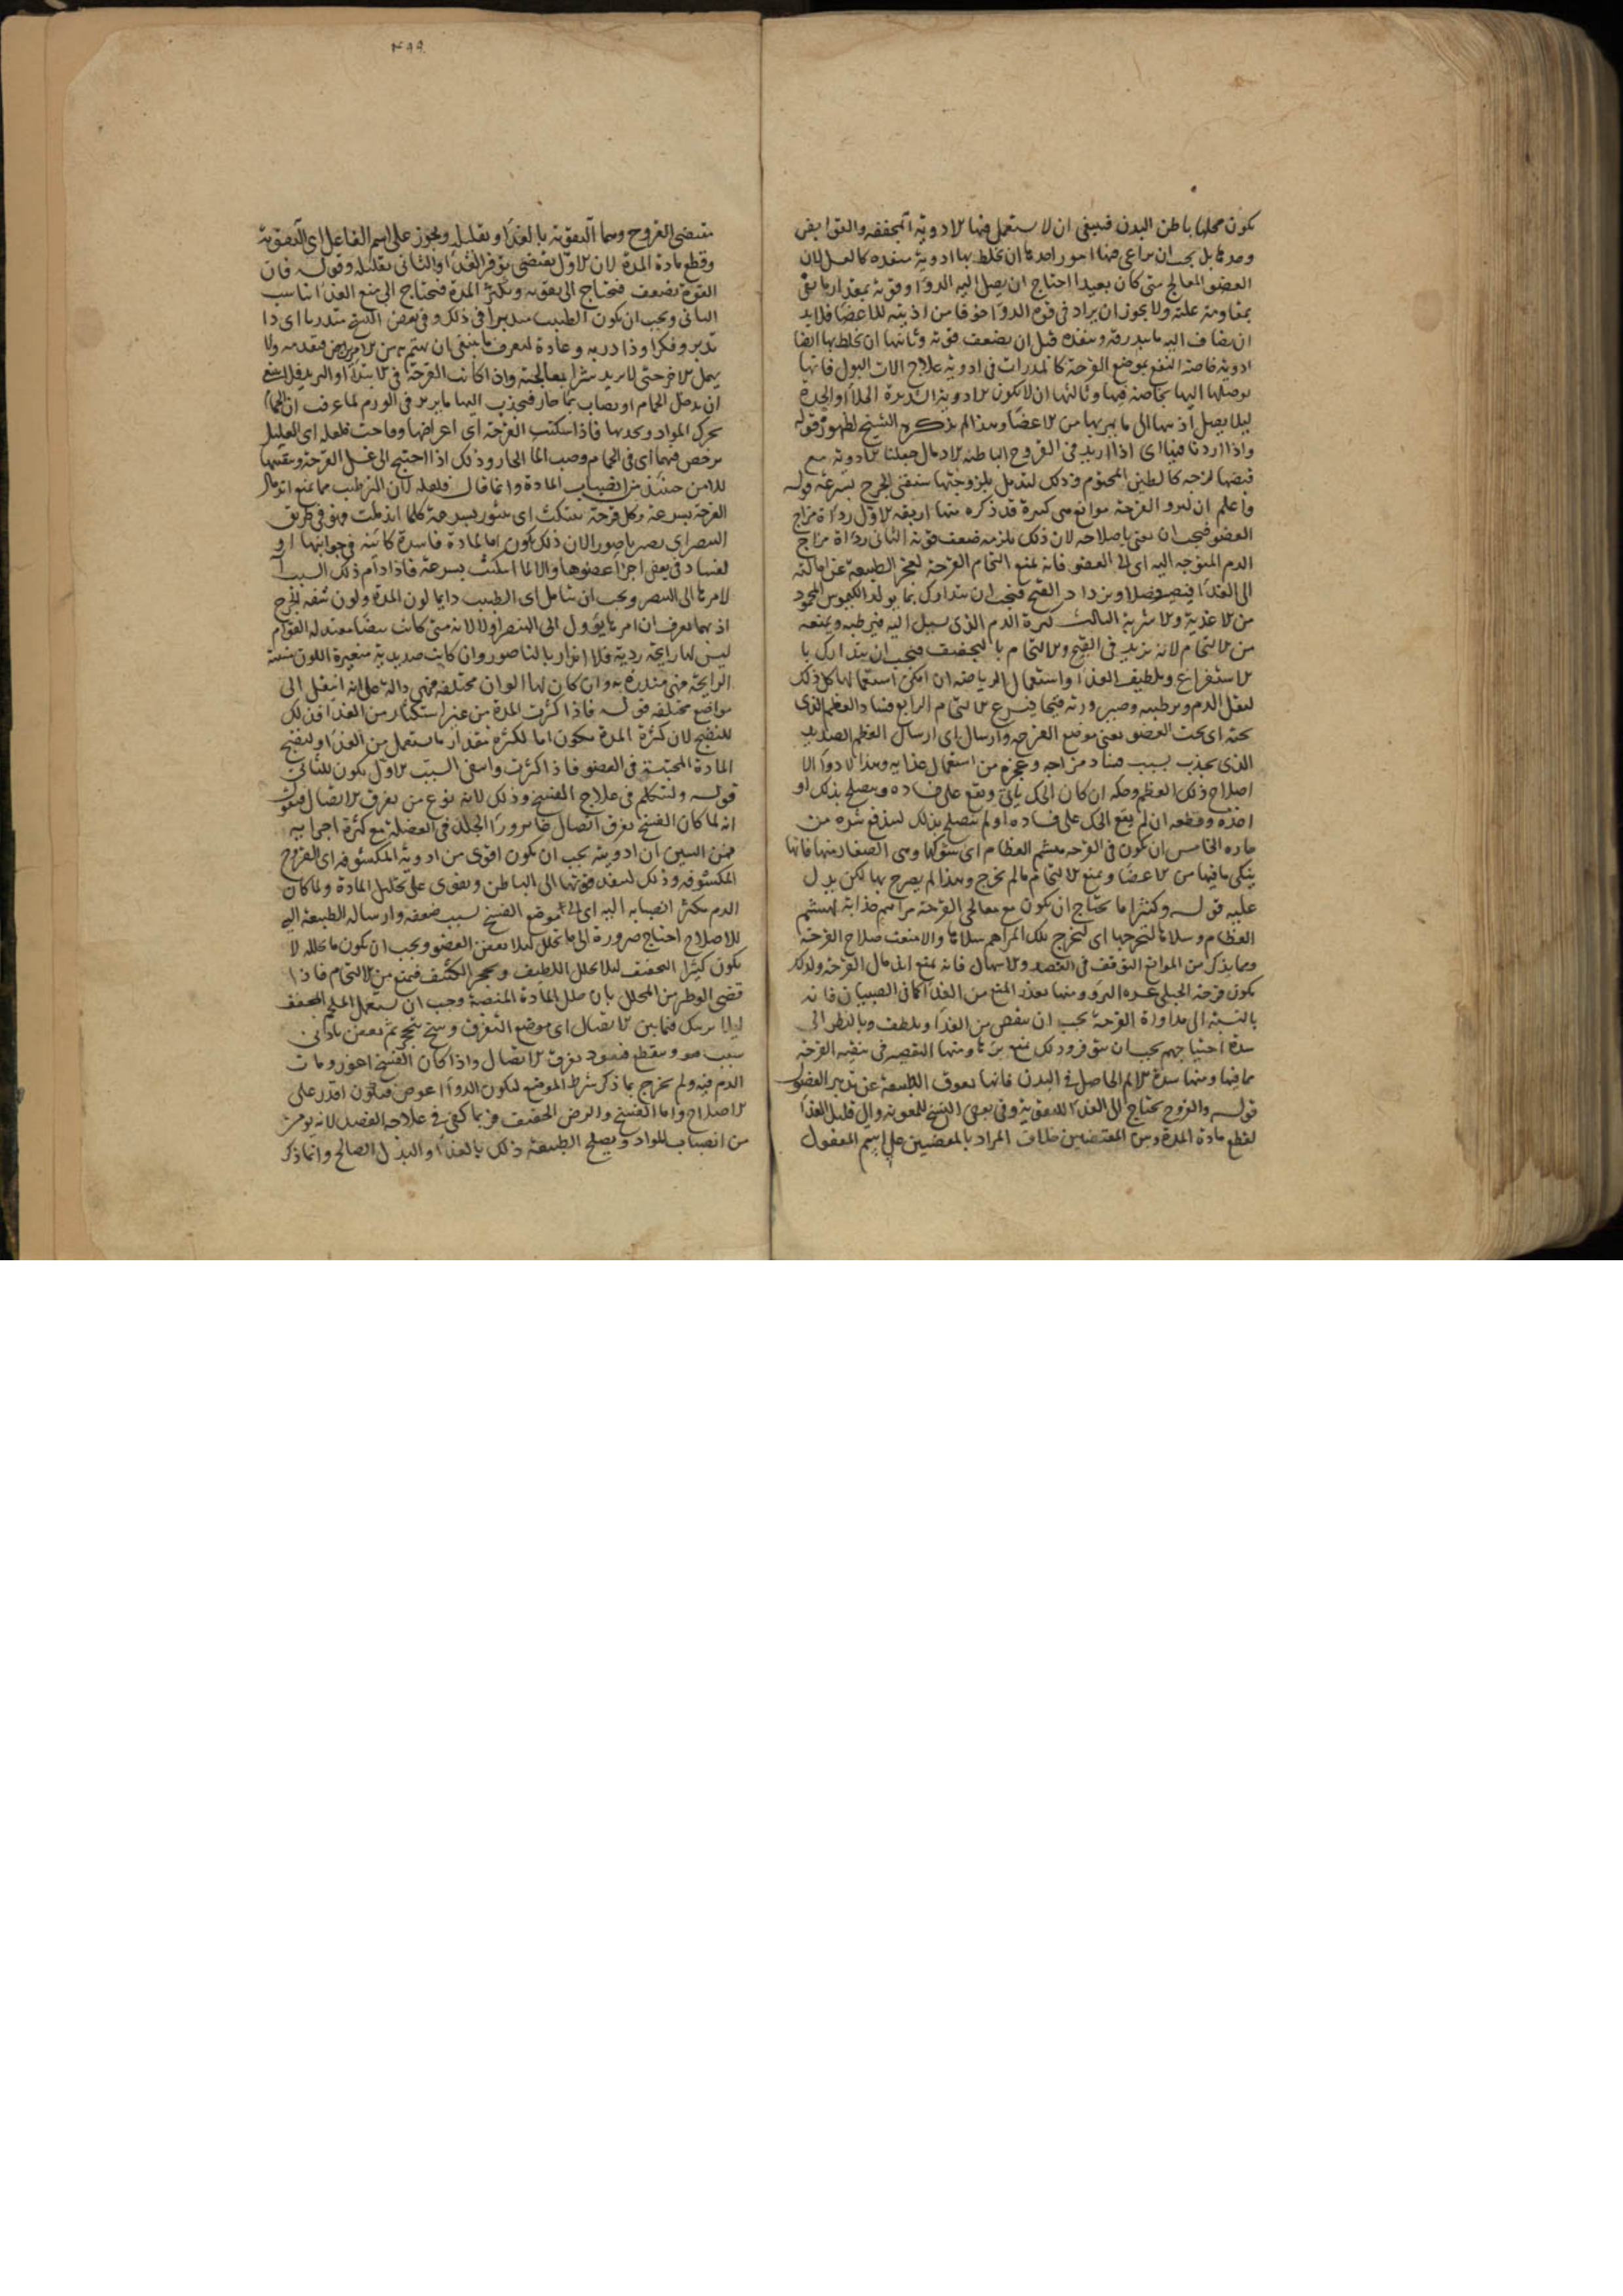 يكون محلها باطن البدن فينبغي ان لا يستعمل فيها الادوية المجففة والقوابض
وحدها بل يجب ان يراعى فيها امور احدها ان يخلط بها ادوية منفذه كالعسل لان
العضو المعالج متى كان بعيدا احتاج ان يصل اليه الدوا وقوته بمقدار ما يفى
بمقاومة علته ولا يجوز ان يزاد فى قوة الدوا خوفا من اذيته للاعضا فلابد
ان يضاف اليه ما يبدرقه وينفذه قبل ان يضعف قوته وثانيها ان يخلط بها ايضا
ادوية خاصة النفع بموضع القرحة كالمدرات فى ادوية علاج الات البول فانها
توصلها اليها بخاصة فيها وثالثها ان لا يكون الادوية شديدة الجلا او الحدة
ليلا يصل اذيتها الى ما يمر بها من الاعضا وهذا لم يذكره الشيخ لظهوره قوله
واذا اردنا فيها اى اذا اريد فى القروح الباطنه الادمال جعلنا الادوية مع
قبضها لزجه كالطين المختوم وذلك لتدمل بلزوجتها سيبقى الجرح بسرعة قوله
واعلم ان لبرو القرحة موانع هى كثيرة قد ذكره منها اربعة الاول رداة مزاج
العضو فيجب ان يعتنى باصلاحه لان ذلك يلزمه ضعف قوته الثانى رداة مزاج
الدم المتوجه اليه اى الى العضو فانه يمنع التحام القرحة لعجز الطبيعة عن احالته
الى الغذا فيصير فضلا ويزداد القيح فيجب ان يتدارك بما يولد الكيموس المحمود
من الاغذية والاشربة الثالث كثرة الدم الذى يسيل اليه فيرطبه ويمنعه
من الالتحام لانه يزيد فى القيح والالتحام بالتجفيف فيجب ان يتدارك با
لاستفراغ وتلطيف الغذا واستعمال الرياضة ان امكن استعمالها كل ذلك
ليقل الدم وترطيبه وصيرورته قيحا فيسرع الالتحام الرابع فساد العظم الذى
تحته اى تحت العضو يعنى موضع القرحه وارسال اى ارسال العظم الصديد
الذى يحدث بسبب فساد مزاجه وعجزه من استعمال غذايه وهذا لا دوا له الا
اصلاح ذلك العظم وحكه ان كان الحك ياتى ويقع على فساده ويصلح بذلك او
اخذه وقطعه ان لم يقع الحك على فساده او لم يصلح بذلك ليندفع شره من
جاره الخامس ان يكون فى القرحه هشيم العظام اى شوكها وهى الصغار منها فانها
ينكى ما فيها من الاعضا ويمنع الالتحام ما لم يخرج وهذا لم يصرح بها لكن يدل
عليه قوله وكثيرا ما يحتاج ان يكون مع معالجى القرحة مراهم جذابة لهشيم
العظام وسلاءها لتخرجها اى ليخرج تلك المراهم سلاءها والا منعت صلاح القرحة
ومما يذكر من الموانع التوقف فى الفصد والاسهال فانه يمنع اندمال القرحة ولذلك
يكون قرحة الحبلى عسره البرو ومنها تعذر المنع من الغذا كما فى الصبيان فانه
بالنسبة الى مداواة القرحة يجب ان ينقص من الغذا ويلطف وبالنظر الى
شدة احتياجهم يجب ان يتوفر وذلك يمنع برءها ومنها التقصير فى تنقية القرحة
مما فيها ومنها شدة الالم الحاصل فى البدن فانها تعوق الطبيعة عن تدبير العضو
قوله والقروح يحتاج الى الغذا للتقوية وفى بعض النسخ للتقوية والى قليل الغذا
لقطع مادة المدة وبين المقتضيين خلاف المراد بالمقتضيين على اسم المفعول
٤٩٩
مقتضى القروح وهما التقوية بالغذا وتقليله ويجوز على اسم الفاعل اى التقوية
وقطع مادة المدة لان الاول يقتضى توفر الغذا والثانى تقليله وقوله فان
القوة تضعف فيحتاج الى تقويه وتكثر المدة فيحتاج الى منع الغذا يناسب
الثانى ويجب ان يكون الطبيب متدبرا فى ذلك وفى بعض النسخ متدربا اى ذا
تدبر وفكر او ذا دربه وعادة ليعرف ما ينبغى ان يهتم به من الامرين فيقدمه ولا
يهمل الاخر حتى لا يزيد شرا بمعالجته واذا كانت القرحة فى الابتدا او التزيد فلا ينبغى
ان يدخل الحمام او يصاب بما حار فيجذب اليها ما يزيد فى الورم لما عرفت ان الحمام
يحرك المواد ويجذبها فاذا سكنت القرحة اى اعراضها وقاحت فلعله اى العليل
يرخص فيهما اى فى الحمام وصب الما الحار وذلك اذا احتيج الى غسل القرحة وتنقيتها
للامن حينئذ من انصباب المادة وانما قال فلعله لان الترطيب مما يمنع اندمال
القرحة بسرعة وكل قرحة تنتكث اى تنتور بسرعة كلما اندملت فهو فى طريق
التنصر اى تصير ناصورا لان ذلك يكون اما لمادة فاسدة كاينه فى جوانبها او
لفساد فى بعض اجزا عضوها والا لما انتكثت بسرعة فاذا دام ذلك السبب آل
الامر بها الى التنصر ويجب ان يتامل اى الطبيب دايما لون المدة ولون شفة الجرح
اذ بهما يعرف ان امرها يؤول الى التنصر اولا لانه متى كانت بيضا معتدلة القوام
ليس لها رايحة ردية فلا انذار بالناصور وان كانت صديدية متغيرة اللون منتنة
الرايحة فهى منذرة به وان كان لها الوان مختلفة فهى دالة على انه انتقل الى
مواضع مختلفة قوله فاذا كثرت المدة من غير استكثار من الغذا فذلك
للنضج لان كثرة المدة يكون اما لكثرة مقدار ما يستعمل من الغذا او لنضج
المادة المحتبسة فى العضو فاذا كثرت وانتفى السبب الاول يكون للثانى
قوله ولنتكلم فى علاج الفسخ وذلك لانه نوع من تفرق الاتصال فيقول
انه لما كان الفسخ تفرق اتصال غايرا ورا الجلد فى العضلة مع كثرة اجزايه
فمن البين ان ادويته يجب ان يكون اقوى من ادوية المكشوفة اى القروح
المكشوفة وذلك لينفذ قوتها الى الباطن ويقوى على تحليل المادة ولما كان
الدم يكثر انصبابه اليه اى الى موضع الفسخ لسبب ضعفه وارساله الطبيعة اليه
للاصلاح احتاج ضرورة الى ما يحلل ليلا يعفن العضو ويجب ان يكون ما يحلله لا
يكون كثيرا التجفيف ليلا يحلل اللطيف ويحجر الكثيف فيمنع من الالتحام فاذا
قضى الوطر من المحلل بان حلل المادة المنصبة وجب ان يستعمل الملحم المجفف
ليلا يرتبك فيما بين الاتصال اى موضع التفرق وسخ يتحجر ثم يعفن بادنى
سبب هو ويتقطع فيعود تفرق الاتصال واذا كان الفسخ اغور ومات
الدم فيه ولم يخرج بما ذكر شرط الموضع ليكون الدوا اغوص فيكون اقدر على
الاصلاح واما الفسخ والرض الخفيف فربما كفى فى علاجه الفصد لانه يؤمن
من انصباب المواد ويصلح الطبيعة ذلك بالغذا والبدل الصالح وانما ذكر